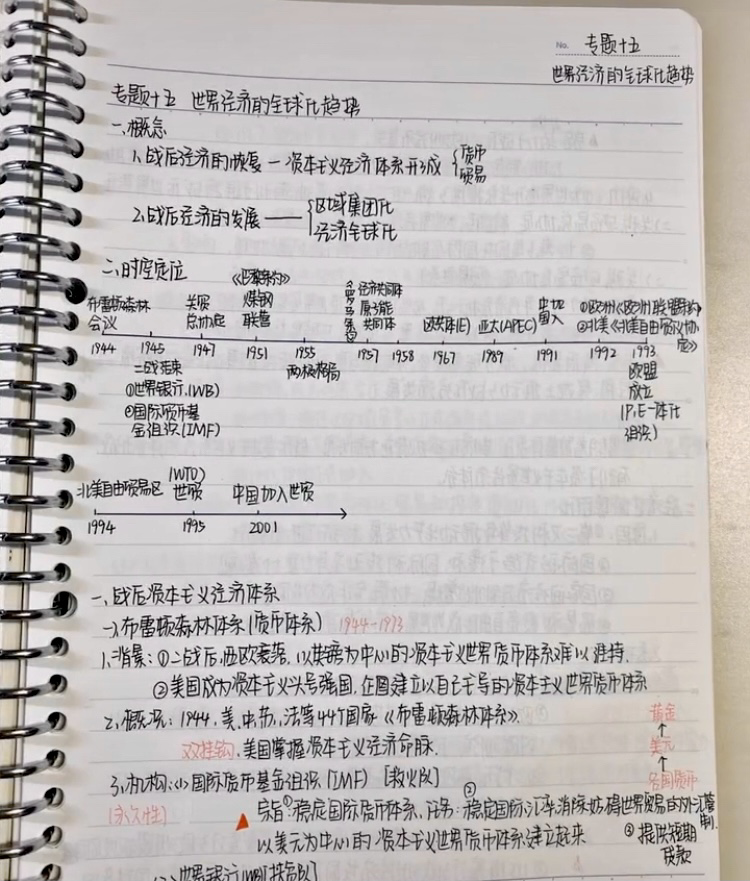 No. 专题十五
世界经济的全球化趋势
专题十五 世界经济的全球化趋势
一、概念
1、战后经济的恢复—资本主义经济体系形成{货币 贸易
2、战后经济的发展——{区域集团化 经济全球化
二、时空定位
布雷顿森林会议 关贸总协定 煤钢联营 经济共同体 原子能共同体 欧共体(E) 亚太(APEC) 中加入 ①欧洲《欧洲联盟条约》
②北美《北美自由贸易协定》
1944 1945 1947 1951 1955 1957 1958 1967 1989 1991 1992 1993
二战结束 两极格局 欧盟
①世界银行(WB) 成立
②国际货币基 (P、E一体化
金组织(IMF) 组织)
北美自由贸易区 (WTO)世贸 中国加入世贸
1994 1995 2001
一、战后资本主义经济体系
(一)布雷顿森林体系(货币体系) 1944-1973
1、背景:①二战后,西欧衰落,以英镑为中心的资本主义世界货币体系难以维持.
②美国成为资本主义头号强国,企图建立以自己主导的资本主义世界货币体系
2、概况:1944,美、中、苏、法等44个国家《布雷顿森林体系》. 黄金
双挂钩,美国掌握资本主义经济命脉. ↑美元
3、机构:(1)国际货币基金组织(IMF)[救火队] ↑各国货币
(永久性) 宗旨:①稳定国际货币体系、任务:②稳定国际汇率消除妨碍世界贸易的外汇管制.
以美元为中心的资本主义世界货币体系建立起来 ③提供短期贷款
(2)世界银行(WB)[扶贫队]